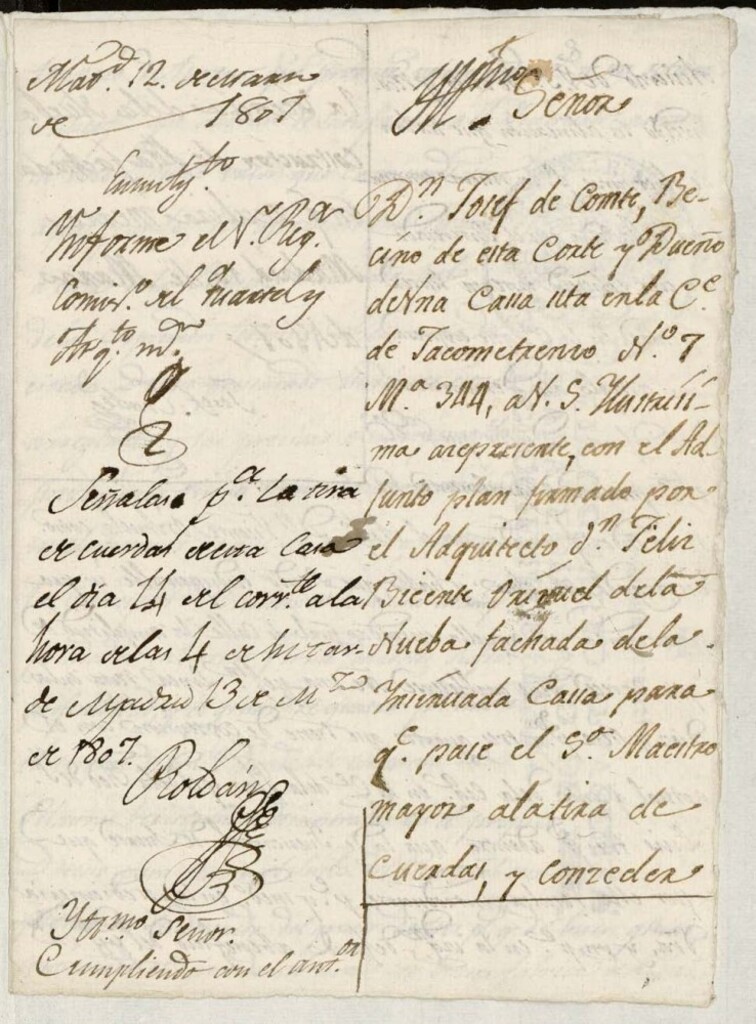 Mad.d 12. de Marzo
de 1807
En Ayuntam.to
Informe el S.r Reg.or
Comis.o del Quartel y
Arq.to m.or
Señalase p.a la tira
de cuerdas de esta Casa
el dia 14 del corr.te a la
hora de las 4 de la tar-
de Madrid 13 de M.zo
de 1807.
Roldán
Yll.mo Señor.
Cumpliendo con el ant.or
Yll.mo
Señor
D.n Josef de Comte, Be-
cino de esta Corte y Dueño
de Una Casa sita en la C.e
de Jacometrenzo N.o 7
M.a 344, a V. S. Ylustrisi-
ma arepresente, con el Ad-
junto plan firmado por
el Adquitecto d.n Felix
Bicente de la
Nueba fachada de la
Insinuada Casa para
q.e pase el S.or Maestro
mayor a la tira de
Cuerdas, y conzeder